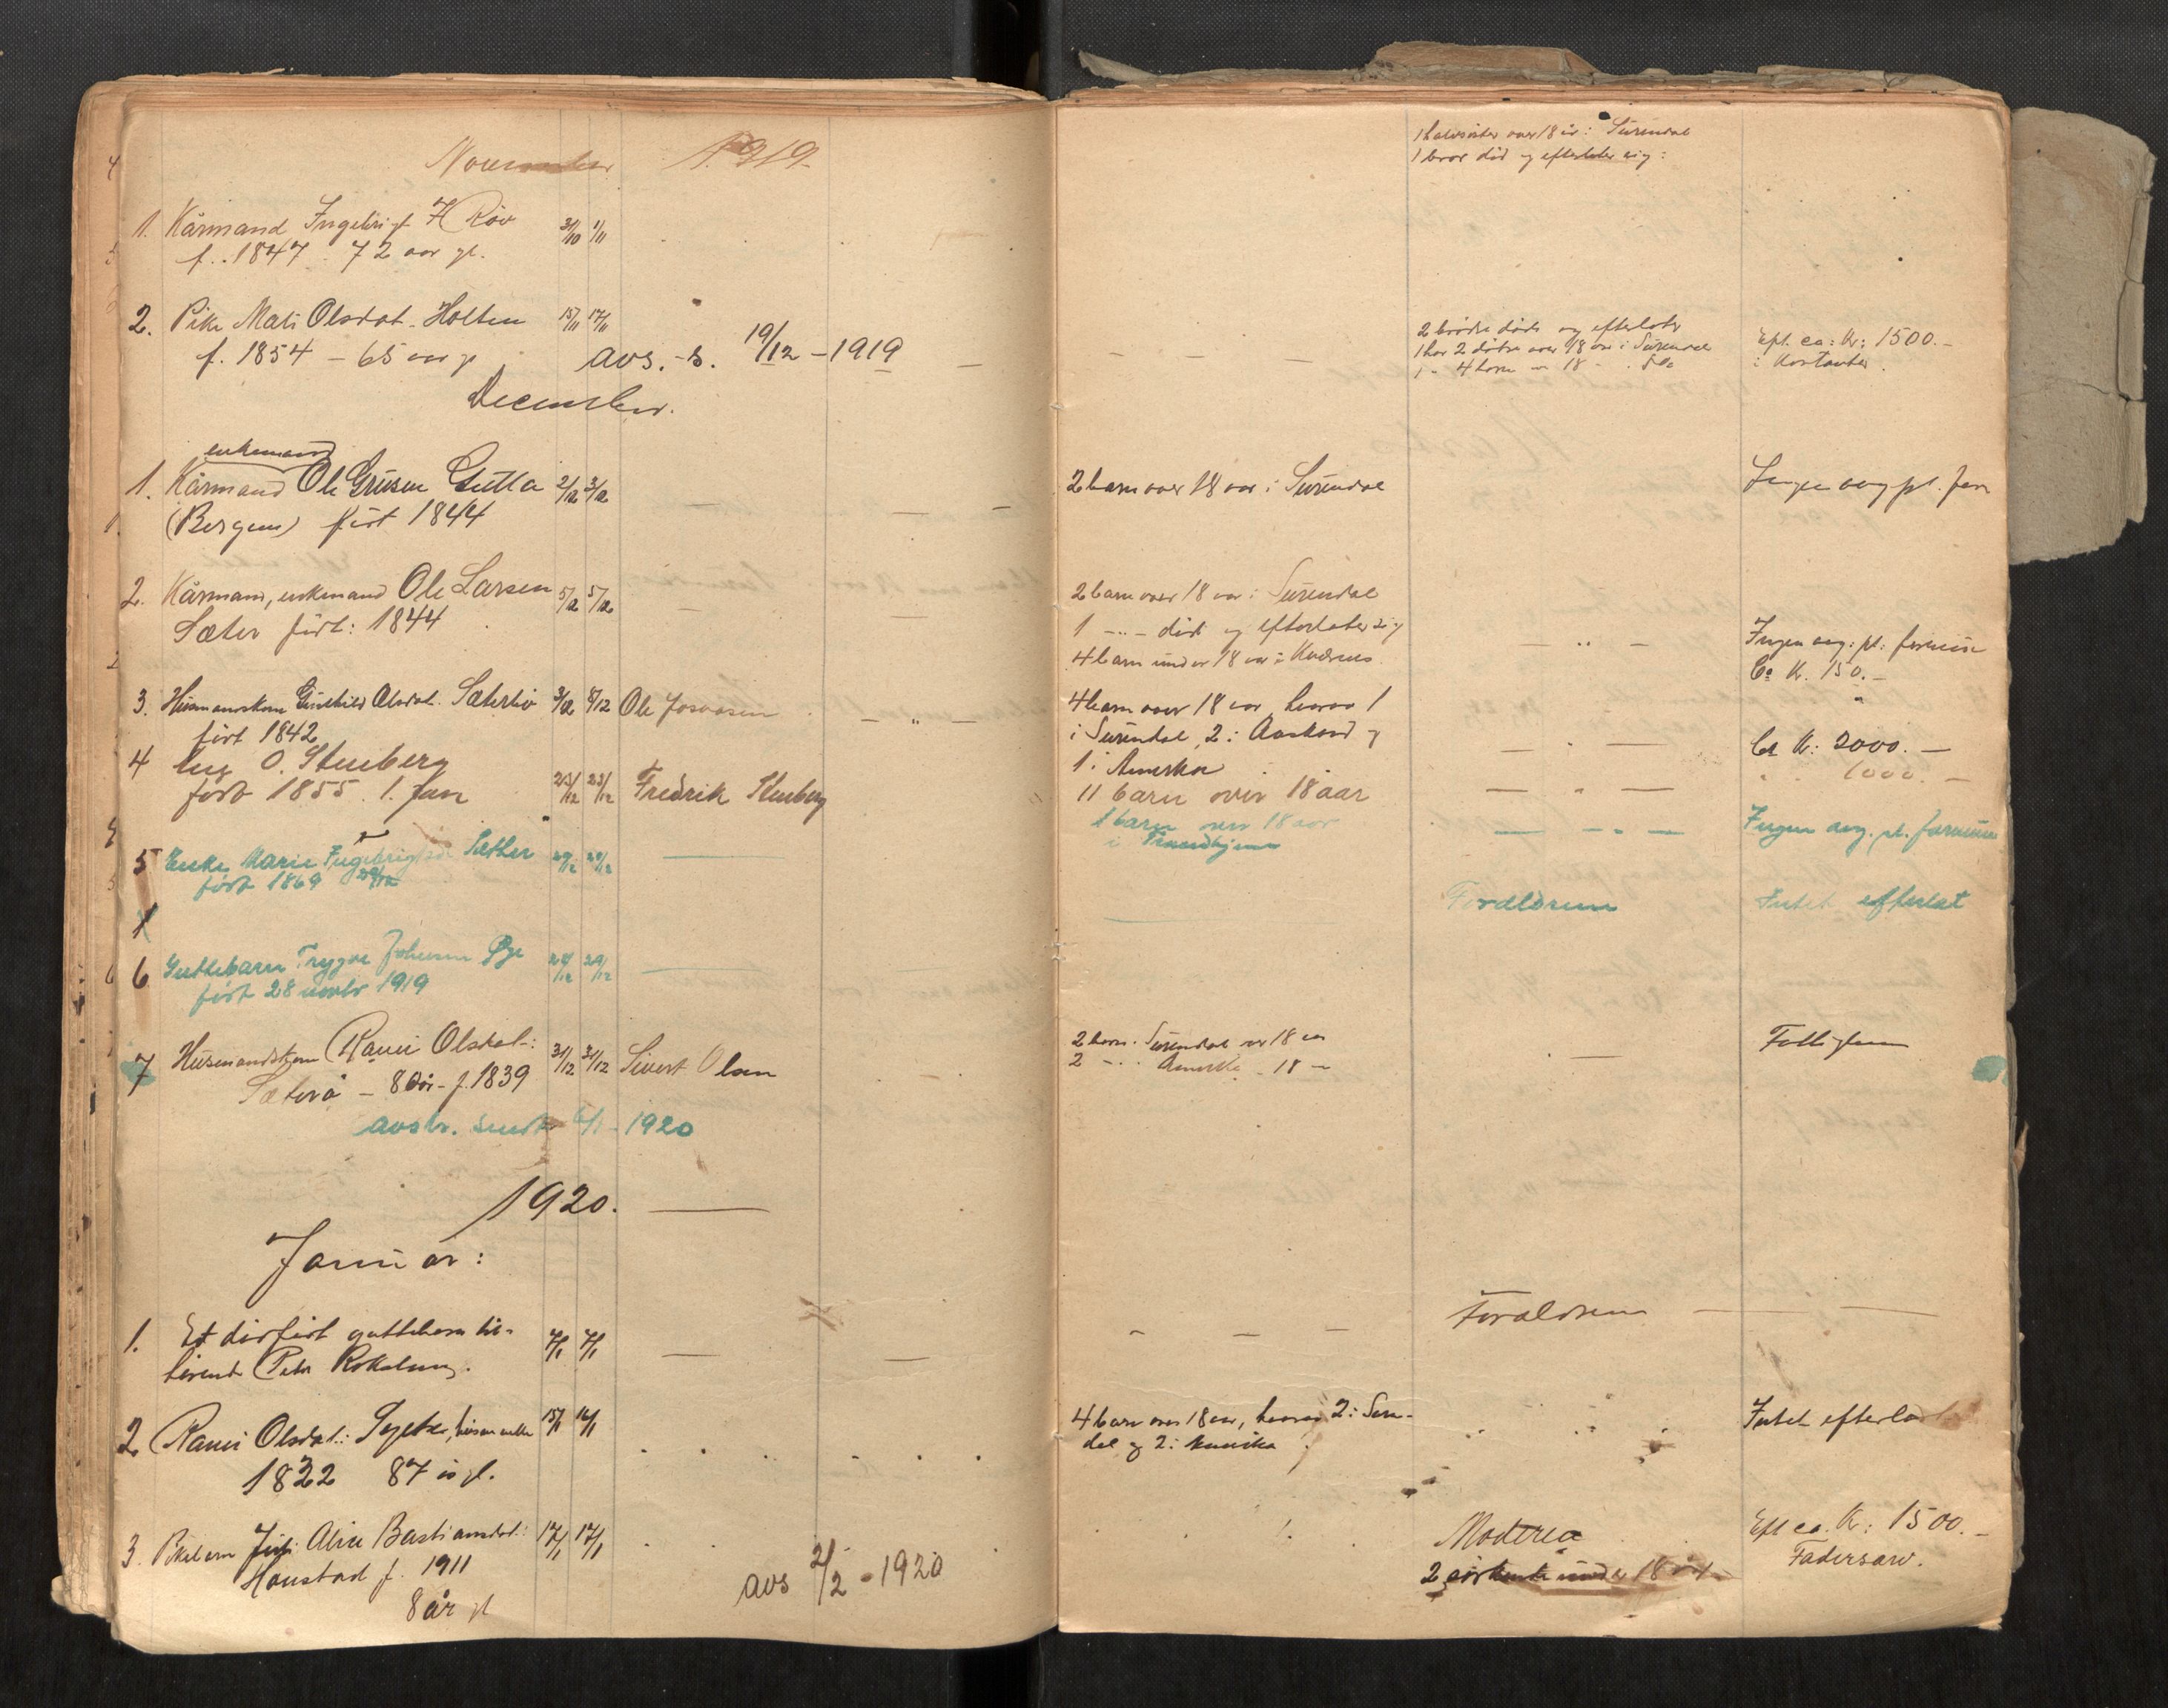 November 1919.
1. Kårmand Ingebrigt H Röv 31/10 1/11
f. 1847. 72 aar gl.
2. Pike Mali Olsdat. Holten 15/11 17/11
f. 1854 – 65 aar gl
avs. -s. 19/12 – 1919
December.
enkemand
1. Kårmand Ole Gutta 2/12 3/12
(Bergem) født 1844
2. Kårmand, enkemand Ole Larsen 5/12 5/12
Sæter født: 1844
3. Husmandskone Gunhild Olsdat. Sæterbö 3/12 8/12 Ole
født 1842
4 O. Stenberg
født 1855 1. Jan 23/12 23/12 Fredrik Stenberg
5 Enke Marie Sæther
født 1869
6 Guttebarn Trygve Johnsen Øye 29/12
født 28 novbr 1919
7 Husmandskone Ranei Olsdat.: 31/12 31/12 Sivert Olsen
Sæterö – 80 år – f. 1839
avskr. sendt 6/1 – 1920
1920.
Januar:
1. Et dödfödt guttebarn til-
hörende Peter 7/1 7/1
2. Ranei Olsdat.: 15/1 16/1
1832 87 år gl.
3. Pikebarn Alice Bastiansdat.: 17/1 17/1
Honstad f. 1911
8 år gl
avs 2/2 - 1920
1 halvsöster over 18 år i Surendal
1 bror död og efterlater sig:
2 brödre döde og efterlater
1 har 2 døtre over 18 aar i Surendal
1 " 4 barn " 18
Eft. ca: Kr: 1500.–
i Kontanter.
2 barn over 18 aar i Surendal
2 barn over 18 aar i Surendal
1 –"– död og efterlater sig
4 barn under 18 aar i
Ingen avg: pl: formue
Ca Kr. 150.–
4 barn over 18 aar, hvorav 1
i Surendal, 2 i Aaskard og
1 i Amerika
Ca Kr: 2000.–
" " 1000.–
11 barn over 18 aar
1 barn over 18 aar
i Trondhjem
Ingen avg. pl. formue
Forældrene
Intet efterlat
2 barn i Surendal over 18 aar
2 –"– Amerika – 18 –
Fattiglem
Forældrene
4 barn over 18 aar, hvorav 2 i Suren-
dal og 2 i Amerika
Intet efterladt
Moderen
Eft ca. Kr: 1500.–
Fadersarv.
2 under 18 år